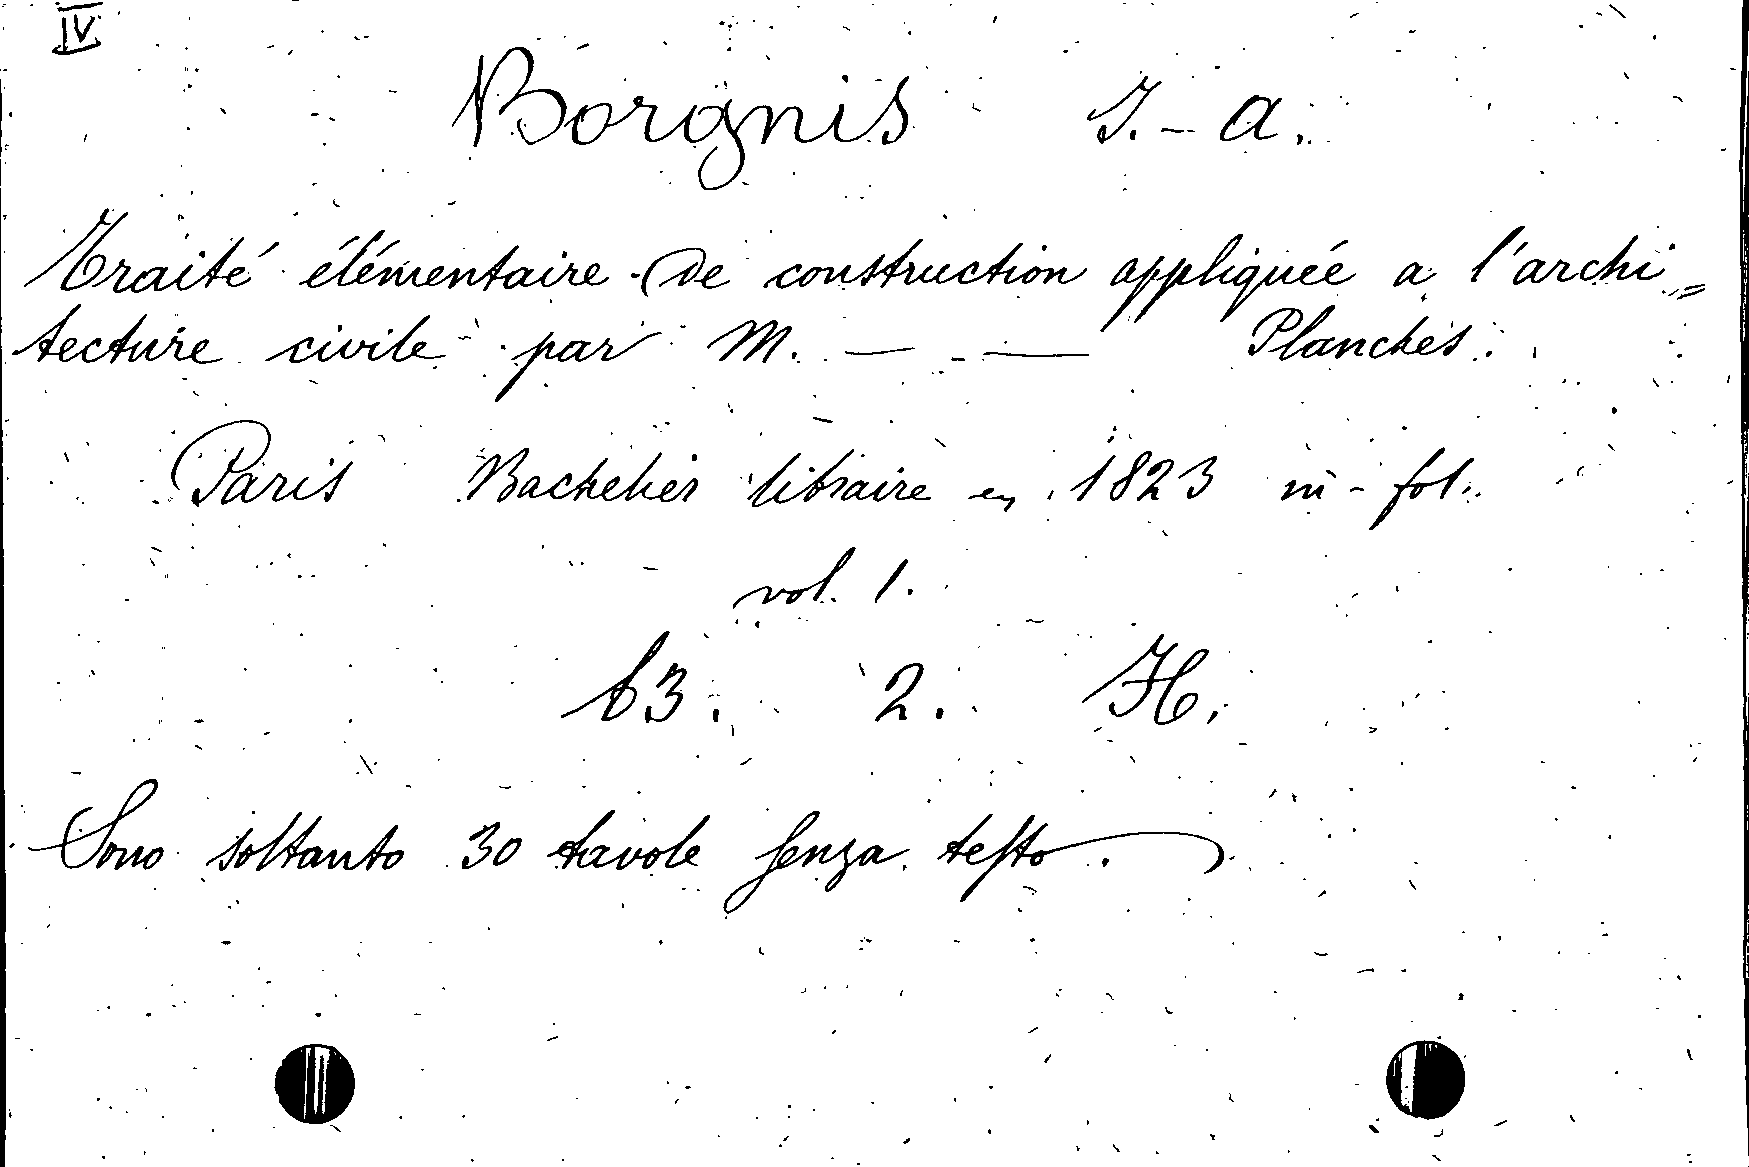 IV
Borgnis J.-A.
Traité élémentaire de construction appliquée a l'archi=
tecture civile par M. — - — Planches.
Paris Bachelier libraire en 1823 in-fol.
vol. 1.
63. 2. H.
Sono soltanto 30 tavole senza testo.